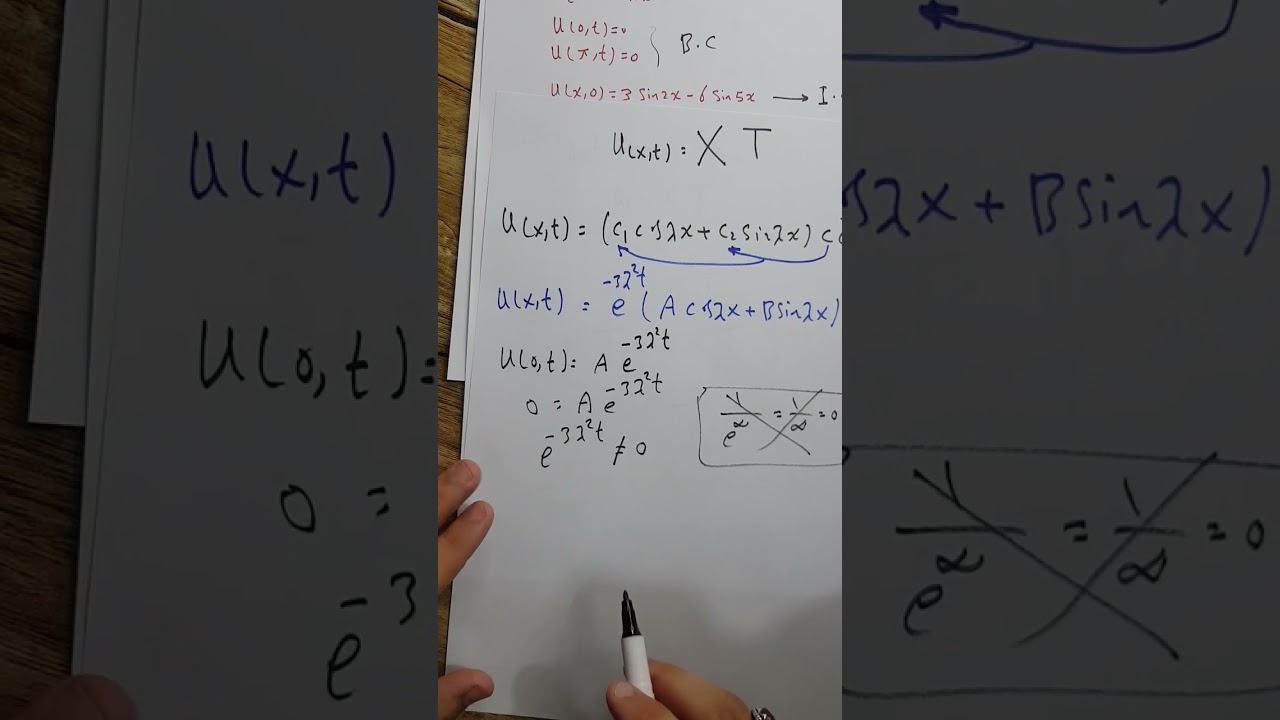 U(0,t)=0
U(π,t)=0
B.C
U(x,0)=3 sin2x-6 sin5x → I.
U(x,t) = X T
U(x,t) = (C₁ cosλx + C₂ sinλx) C
U(x,t) = e^(-3λ²t) (A cosλx + B sinλx)
U(0,t) = A e^(-3λ²t)
0 = A e^(-3λ²t)
e^(-3λ²t) ≠ 0
1/e^∞ = 1/∞ = 0